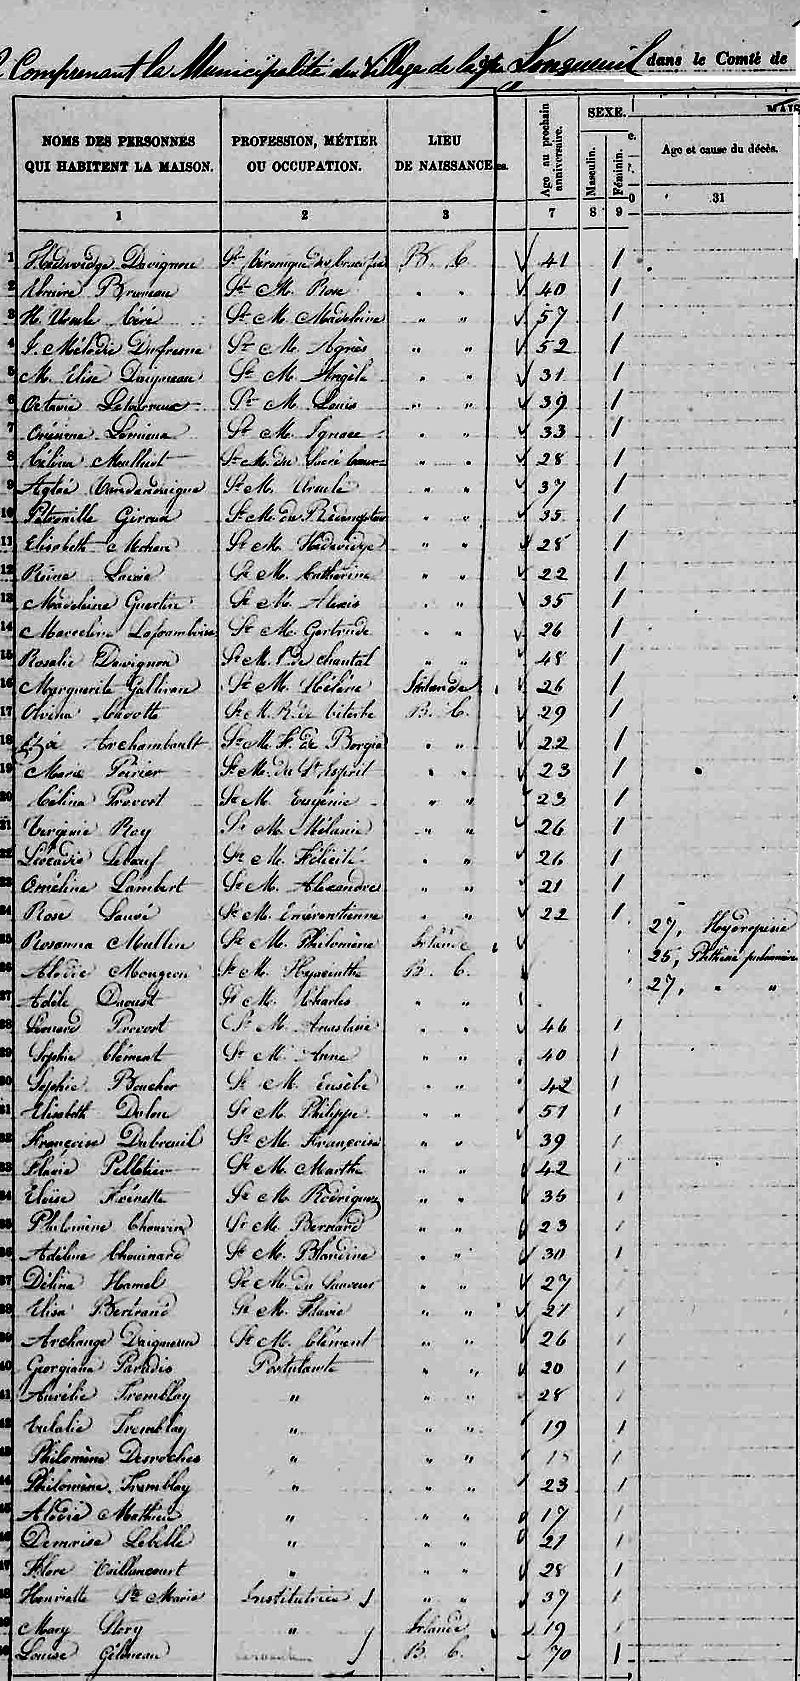 Comprenant la Municipalité du Village de Longueuil dans le Comté de
NOMS DES PERSONNES QUI HABITENT LA MAISON. PROFESSION, MÉTIER OU OCCUPATION. LIEU DE NAISSANCE Age au prochain anniversaire. SEXE. Masculin. Féminin. Age et cause du décès.
1 2 3 7 8 9 31
1 Hedwidge Davignon St Véronique du Crucifix B. C. 41 1
2 Elmire Bruneau St M. Rose " " 40 1
3 H. Ursule Céré St M. Madeleine " " 57 1
4 J. Mélodie Dufresne St M. Agnès " " 52 1
5 M. Elise Daigneau St M. Angèle " " 31 1
6 Octavie St M. Louis " " 39 1
7 Onésime Lemieux St M. Ignace " " 33 1
8 Célina St M. du Sacré Coeur " " 28 1
9 Aglaé Vandandaigue St M. Ursule " " 37 1
10 Pétronille Giroux St M. du Rédempteur " " 35 1
11 Elisabeth Mohan St M. Hedwidge " " 28 1
12 Reine St M. Catherine " " 22 1
13 Madeleine Guertin St M. Alexis " " 35 1
14 Marceline Laframboise St M. Gertrude " " 26 1
15 Rosalie Davignon St M. de chantal " " 48 1
16 Marguerite Gallivan St M. Hélène Irlande 26 1
17 Olvina Cayotte St M. R. de Viterbe B. C. 29 1
18 Archambault St M. F. de Borgia " " 22 1
19 Marie Poirier St M. du St Esprit " " 23 1
20 Célina Prevost St M. Eugénie " " 23 1
21 Virginie Roy St M. Mélanie " " 26 1
22 Léocadie Leboeuf St M. Félicité " " 26 1
23 Orméline Lambert St M. Alexandre " " 21 1
24 Rose Sauvé St M. Emérentienne " " 22 1
25 Rosanna Mullin St M. Philomène Irlande 27, Hydropisie
26 Alodie Mongeon St M. Hyacinthe B. C. 25, Phthisie pulmonaire
27 Adèle Daoust St M. Charles " " 27, " "
28 Prevost St M. Anastasie " " 46 1
29 Sophie Clément St M. Anne " " 40 1
30 Sophie Boucher St M. Eusèbe " " 42 1
31 Elisabeth St M. Philippe " " 51 1
32 Françoise Dubreuil St M. Françoise " " 39 1
33 Flavie Pelletier St M. Marthe " " 42 1
34 Eloïse St M. Rodriguez " " 36 1
35 Philomène Chauvin St M. Bernard " " 23 1
36 Adéline Chouinard St M. Blandine " " 30 1
37 Délina Hamel St M. du Sauveur " " 27 1
38 Elisa Bertrand St M. Flavie " " 21 1
39 Archange Daigneau St M. Clément " " 26 1
40 Georgiana Paradis Postulante " " 20 1
41 Aurélie Tremblay " " " 28 1
42 Eulalie Tremblay " " " 19 1
43 Philomène Desroches " " " 1
44 Philomène Tremblay " " " 23 1
45 Alodie Mathieu " " " 17 1
46 Démerise Lebelle " " " 21 1
47 Flore Vaillancourt " " " 28 1
48 Henriette Ste Marie Institutrice " " 37 1
49 Mary Story " Irlande 19 1
50 Louise Gélineau B. C. 70 1